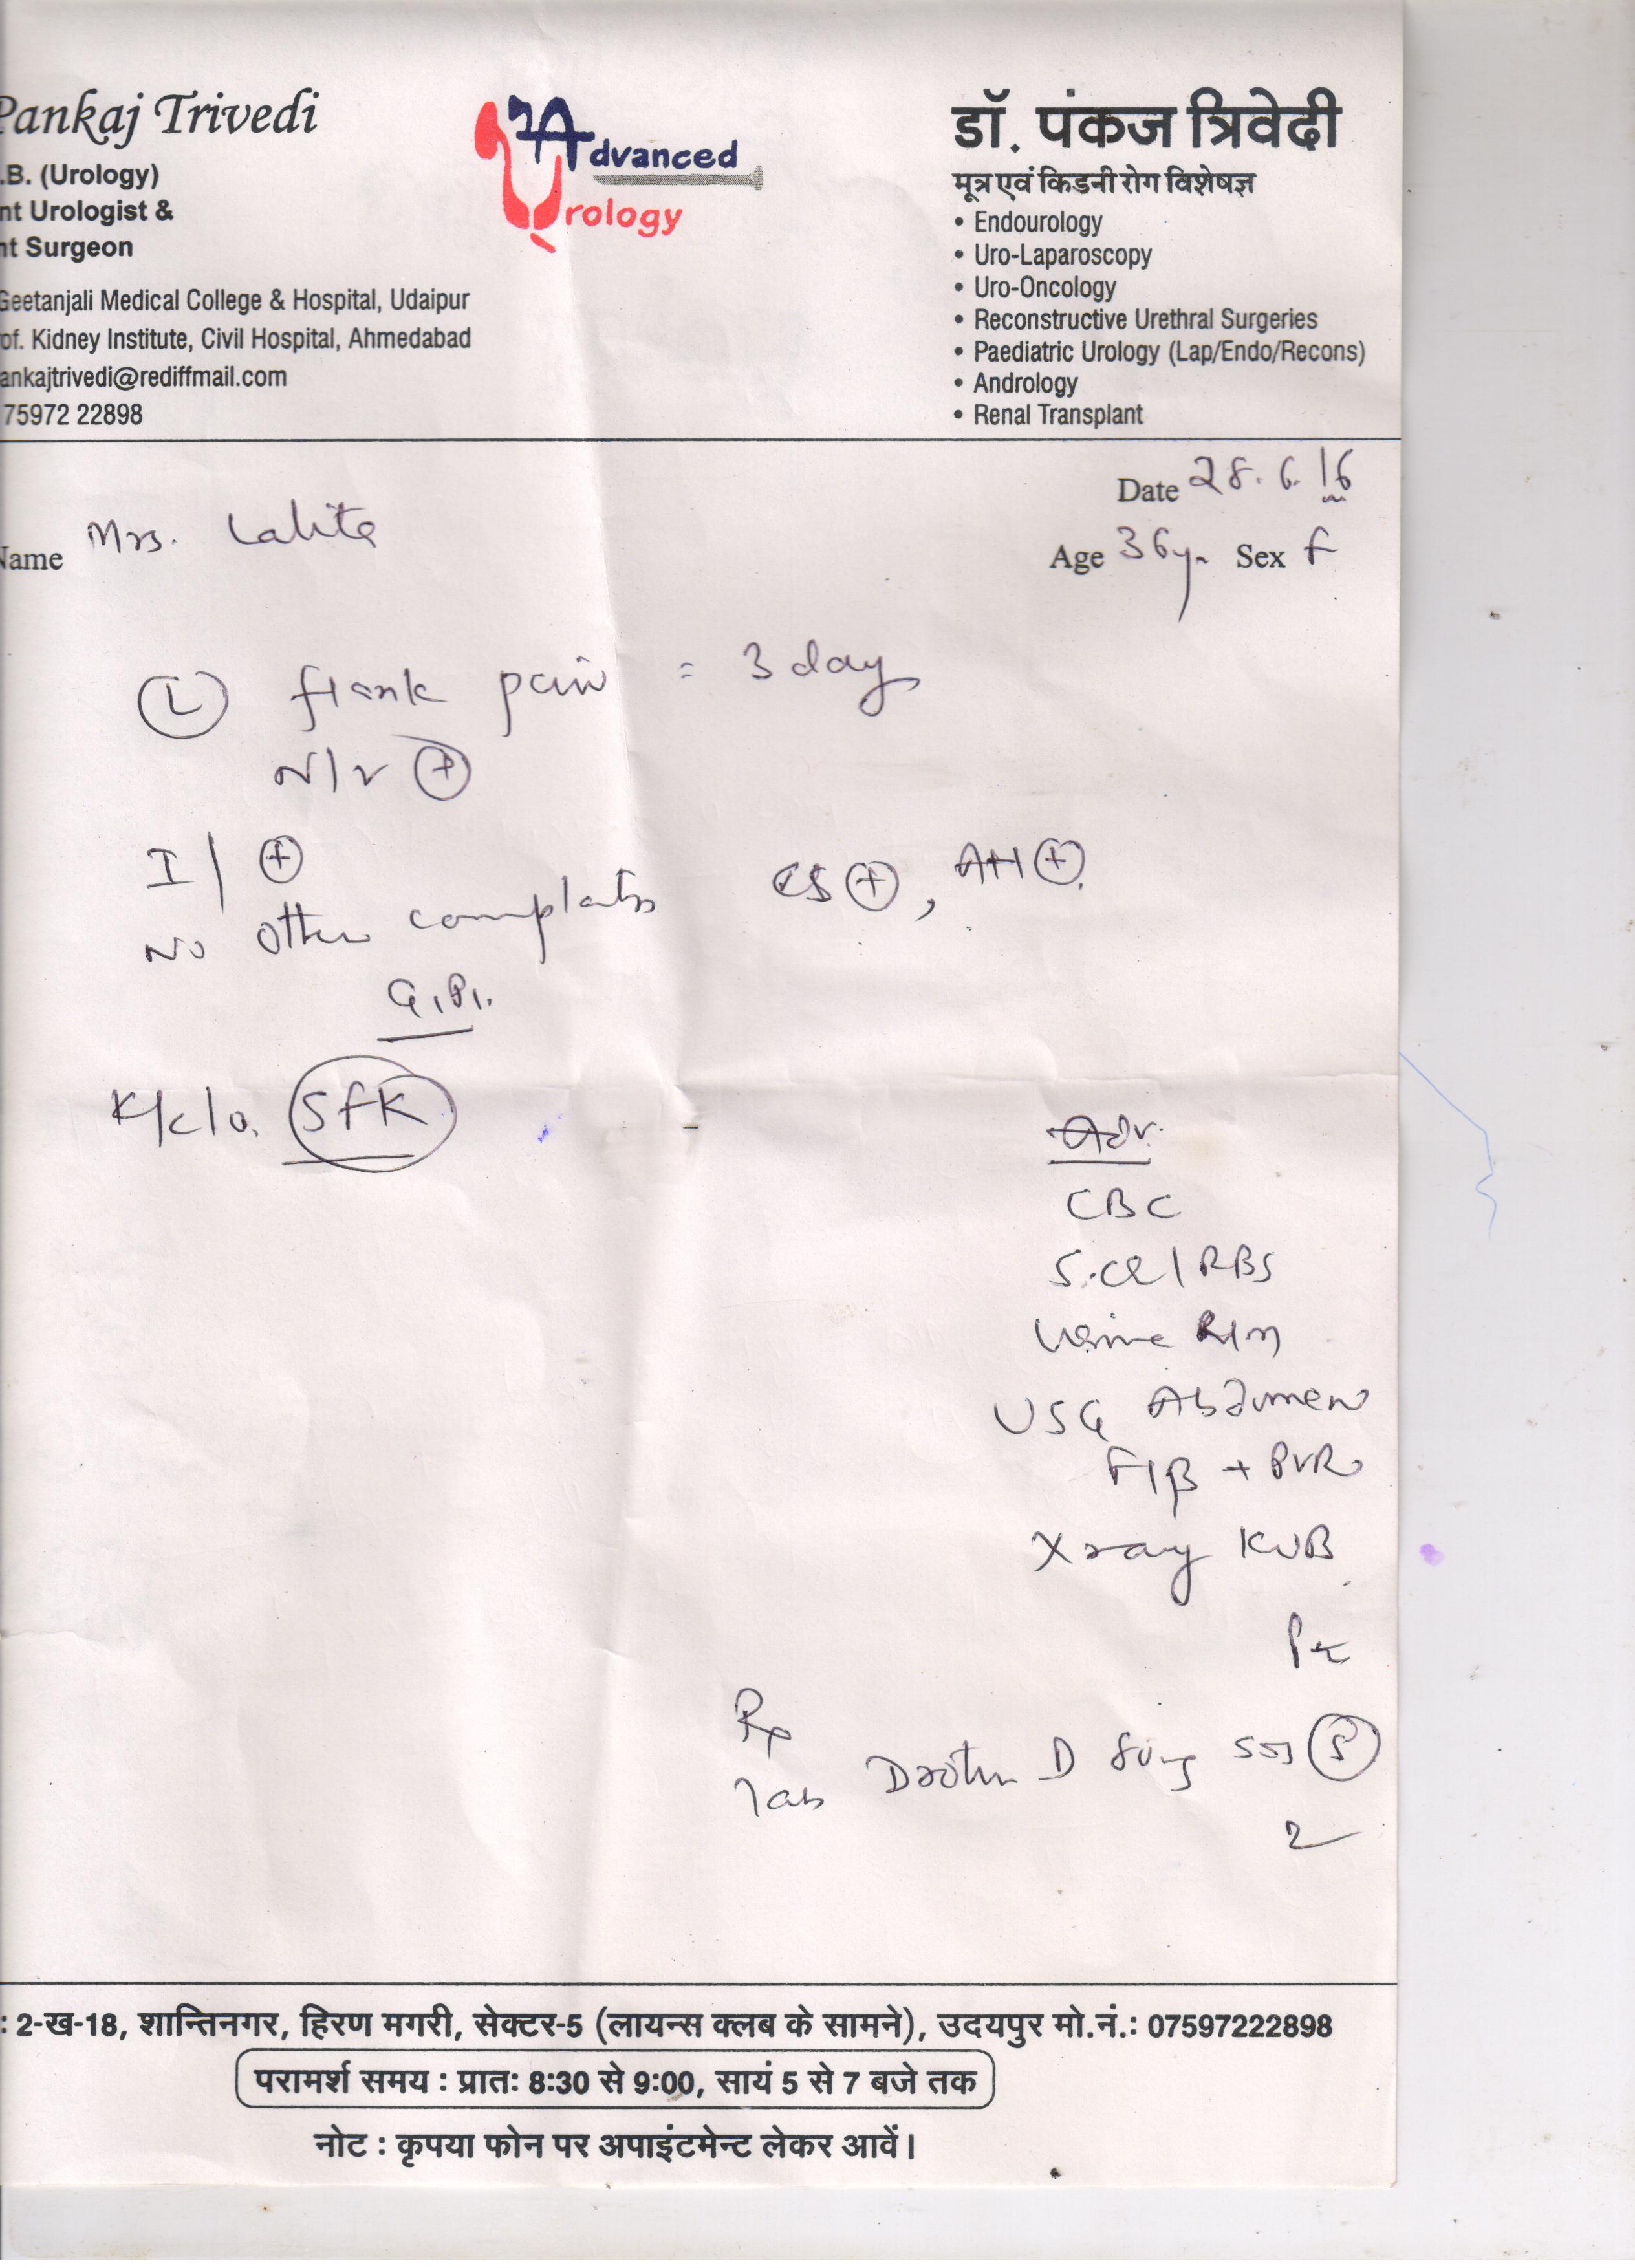 Pankaj Trivedi
.B. (Urology)
nt Urologist &
nt Surgeon
Geetanjali Medical College & Hospital, Udaipur
of. Kidney Institute, Civil Hospital, Ahmedabad
ankajtrivedi@rediffmail.com
75972 22898
Advanced
Urology
डॉ. पंकज त्रिवेदी
मूत्र एवं किडनी रोग विशेषज्ञ
• Endourology
• Uro-Laparoscopy
• Uro-Oncology
• Reconstructive Urethral Surgeries
• Paediatric Urology (Lap/Endo/Recons)
• Andrology
• Renal Transplant
Date 28.6.16
Name Mrs. Lalita
Age 36y Sex F
(L) flank pain = 3 day
N/V (+)
I/ (+)
No other complaints CS (+), AH (+)
G1P1.
K/c/o. SFK
Adv.
CBC
S.CR/RBS
Urine R/M
USG Abdomen
F/B + PVR
Xray KUB
Rx
Tab Drotin D 80mg SOS (5)
: 2-ख-18, शान्तिनगर, हिरण मगरी, सेक्टर-5 (लायन्स क्लब के सामने), उदयपुर मो.नं.: 07597222898
परामर्श समय : प्रातः 8:30 से 9:00, सायं 5 से 7 बजे तक
नोट : कृपया फोन पर अपाइंटमेन्ट लेकर आवें।